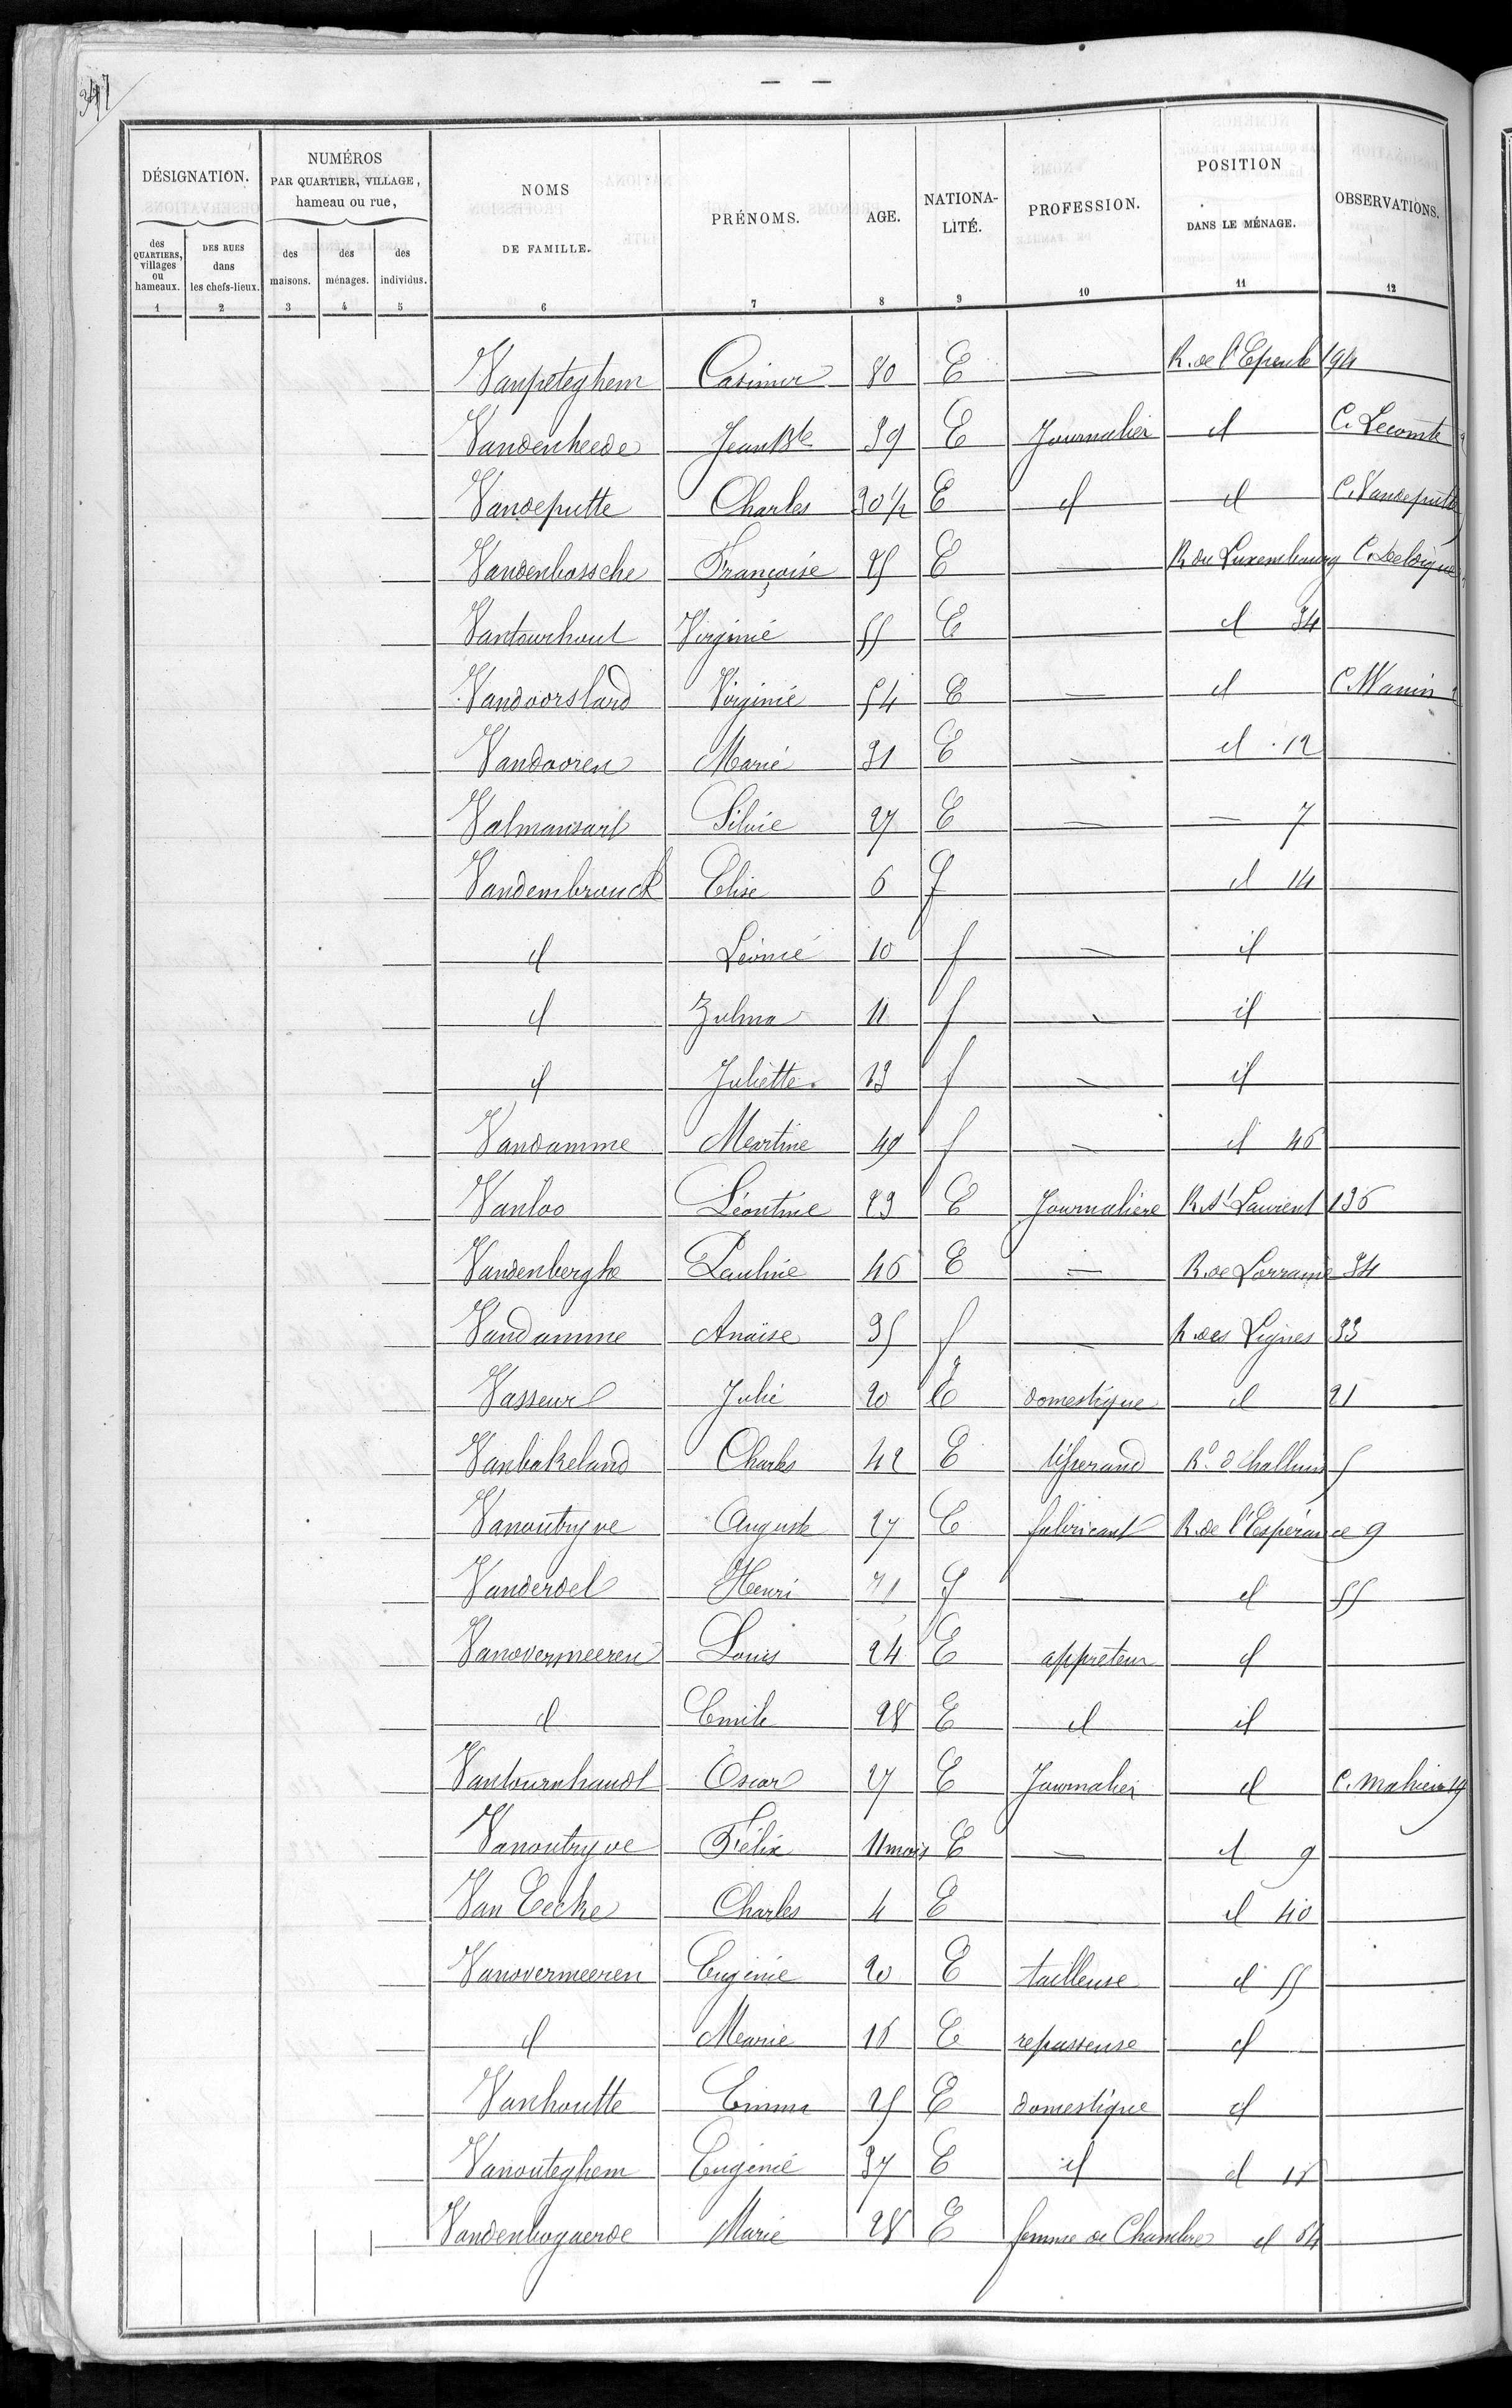 347
DÉSIGNATION.
NUMÉROS PAR QUARTIER, VILLAGE, hameau ou rue,
NOMS DE FAMILLE.
PRÉNOMS.
AGE.
NATIONALITÉ.
PROFESSION.
POSITION DANS LE MÉNAGE.
OBSERVATIONS.
des QUARTIERS, villages ou hameaux.
DES RUES dans les chefs-lieux.
des maisons.
des ménages.
des individus.
1 2 3 4 5 6 7 8 9 10 11 12
Vanpeteghem Casimir 80 E — R. de l'Epeule 194
Vandenheede Jean Bte 39 E Journalier id C. Lecomte
Vandeputte Charles 30 1/2 E id id C. Vandeputte
Vandenbossche Françoise 25 E — R du Luxembourg C. Delorgue
Vantourhout Virginie 55 E — id 34
Vandoorslard Virginie 54 E — id C. Wanin
Vandooren Marie 31 E — id 12
Valmansart Silvie 27 E — — 7
Vandembrouck Elise 6 f — id 14
id Léonie 10 f — id
id Zulma 11 f — id
id Juliette 13 f — id
Vandamme Martine 49 f — id 46
Vanloo Léontine 23 E Journalière R. St Laurent 136
Vandenberghe Pauline 46 E — R. de Lorraine 34
Vandamme Anaïse 35 f — R. des Lignes 33
Vasseur Julie 20 E domestique id 21
Vanbakeland Charles 42 E tisserand R. d'Halluin 5
Vanoutryve Auguste 27 E fabricant R. de l'Espérance 9
Vanderdel Henri 71 f — id 55
Vanovermeeren Louis 24 E appreteur id
id Emile 28 E id id
Vantournhaudt Oscar 27 E Journalier id C. Mahieu 19
Vanoutryve Félix 11 mois E — id 9
Van Eecke Charles 4 E — id 40
Vanovermeeren Eugénie 20 E tailleuse id 55
id Marie 16 E repasseuse id
Vanhoutte Emma 25 E domestique id
Vanouteghem Eugénie 37 E id id 15
Vandenbogaerde Marie 28 E femme de Chambre id 64